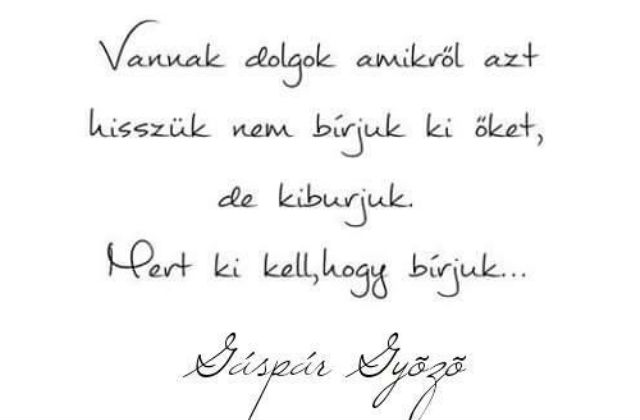 Vannak dolgok amikről azt
hisszük nem bírjuk ki őket,
de kiburjuk.
Mert ki kell,hogy bírjuk...
Gáspár Gyõzõ